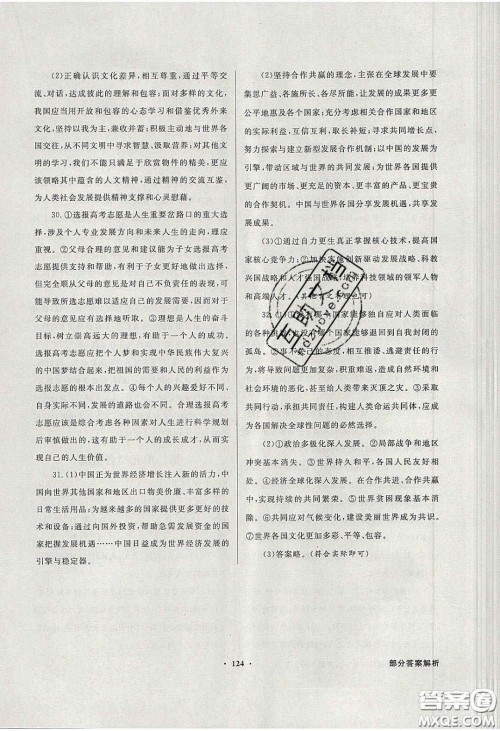 (2)正确认识文化差异，相互尊重，通过平等交
流、对话，达成彼此的理解和包容。
我国应当用开放和包容的心态学习和借鉴优秀外来
文化，坚持以我为主，兼收并蓄；积极主动地与世界各
国交往，从不同文明中寻求智慧、汲取营养；对其他文
明的了解不应只满足于欣赏物件的精美，更应
该领略其中的人文精神，通过文明的交流互鉴，
为人类社会发展提供精神支撑和心灵慰藉。
30.①选报高考志愿是人生重要岔路口的重大选
择，涉及未来的职业方向和未来人生的走向，理
应重视。②父母合理的意见和建议为子女选报高考
志愿提供了方向和参考，有利于子女更好地做出选择。
但完全顺从父母的意见而不考虑自己对人生的
思考和对责任的承担，这样做出的选择有
可能导致所选志愿不适应自己的发展需要。③理想是人生的
目标，树立崇高远大的理想，有助于一个人的成功。
选报高考志愿应把个人梦和实现中华民族伟大复兴
的中国梦结合起来，把祖国的需要和人民的利益作为
选报志愿的根本出发点。④每个人的兴趣爱好不同，
自身实际不同，发展的道路也是多样的。选报高考
志愿应该是综合考虑各种因素对人生进行科学规划
后审慎做出的，这有助于一个人的成长成才，从而实现
自己的人生价值。
31.(1)中国正为世界经济增长注入新的活力，中国
向世界其他国家和地区出口物美价廉、丰富多样的
日常生活用品，为越来越多的国家提供了更好的技
术和设备；通过向国外投资，帮助急需发展资金的国
家把握发展机遇……中国日益成为世界经济发展的
引擎与稳定器。
(2)坚持合作共赢的理念，主张在全球发展中要
集思广益、各施所长、各尽所能，让发展成果更多更
公平地惠及各个国家；充分考虑相关合作国家和地区
的实际利益，互信互利，取长补短，实现共同增长，
努力探索与建立新型发展合作机制；以中国的发展为
引擎，带动区域与世界的共同发展；为世界各国提供
更广阔的市场、更充足的资本、更丰富的产品、更宝贵
的合作契机。中国与世界各国分享发展机遇，共享
发展成果。
(3)①通过自力更生真正掌握核心技术，提高国
家核心竞争力；②加快实施创新驱动发展战略、科教
兴国战略和人才强国战略，培养科技领域的领军人物
和高端人才。
32.(1)①没有哪个国家能够独自应对人类面临
的各种挑战，也没有哪个国家能够退回到自我封闭的
孤岛。②只考虑自己的本国，态度消极、相互推诿、逃避责任，
就会错失机遇，积累矛盾，造成自然环境和
社会环境的恶化，甚至给人类带来灭顶之灾。③世界
各国只有共同担当，同舟共济，构建人类命运共同体，才
是各国解决全球性问题的必然选择。
(2)①政治多极化深入发展。②局部战争和地区
冲突基本消失。③霸权主义、恐怖主义基本消失。
④经济全球化深入发展。⑤世界贫困现象基本消除。
⑥共同应对气候变化，建设美丽世界成为共识。
⑦世界各国文化更加多彩、平等、包容。
(3)答案略。(符合实际即可)
互助文档
· 124 ·
部分答案解析
答案圈
MXQE.COM